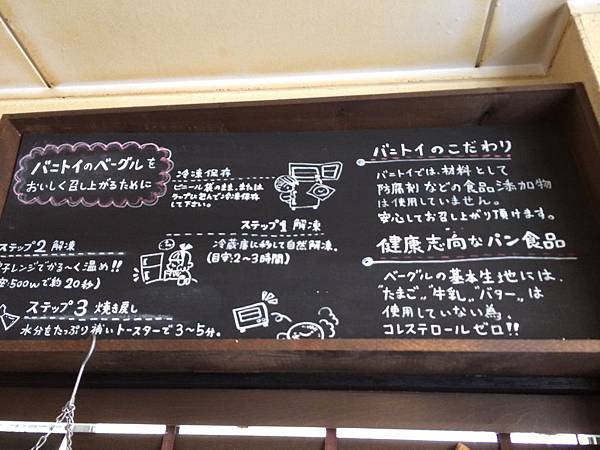 バニトイのベーグルを
おいしく召し上がるために
冷凍保存
ビニール袋のまま、または
ラップに包んで冷凍保存
して下さい。
ステップ1 解凍
冷蔵庫に移して自然解凍。
(目安:2〜3時間)
ステップ2 解凍
子レンジでかる〜く温め!!
安:500wで約20秒)
ステップ3 焼き戻し
水分をたっぷり補いトースターで3〜5分。
バニトイのこだわり
バニトイでは、材料として
防腐剤などの食品添加物
は使用していません。
安心してお召し上がり頂けます。
健康志向なパン食品
ベーグルの基本生地には、
"たまご"、"牛乳"、"バター"、は
使用していない為、
コレステロールゼロ!!